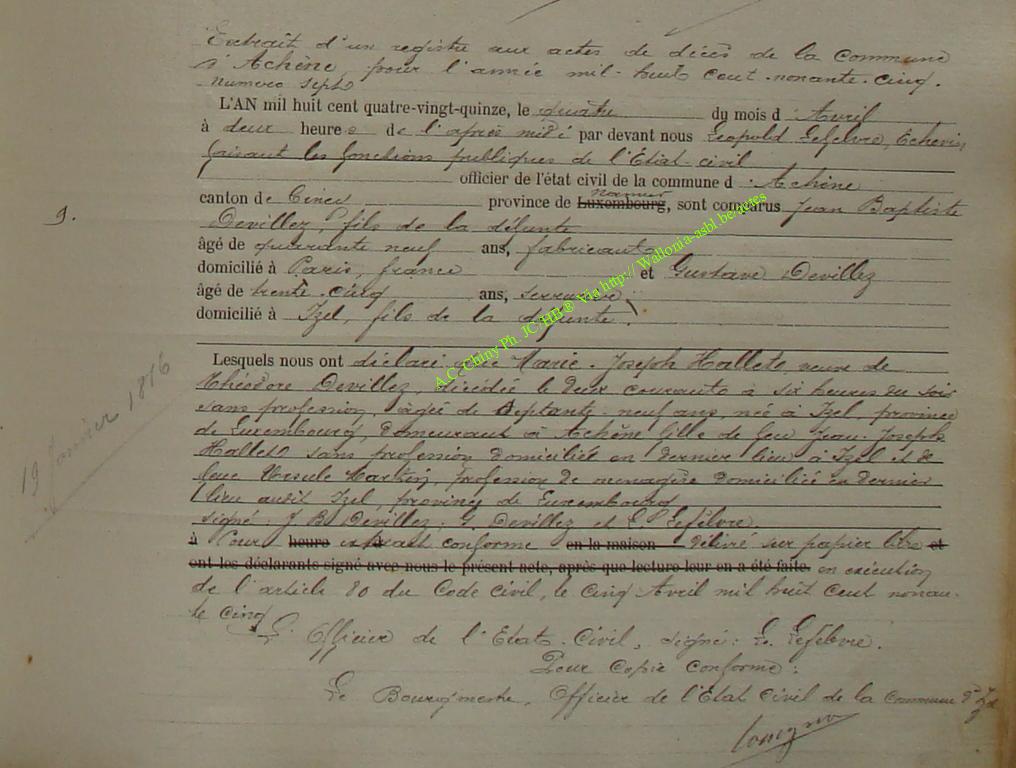 Extrait d'un registre aux actes de décès de la commune
d'Achêne, pour l'année mil-huit cent-nonante-cinq.
Numero sept
L'AN mil huit cent quatre-vingt-quinze, le quatre du mois d'Avril
à deux heures de l'après midi par devant nous Léopold Lefèbvre, Echevin
faisant les fonctions publiques de l'État-civil
officier de l'état civil de la commune d'Achêne
canton de Ciney province de Luxembourg, Namur sont comparus Jean Baptiste
9.
Devillez, fils de la défunte
âgé de quarante neuf ans, fabricant
domicilié à Paris, france et Gustave Devillez
âgé de trente-cinq ans, serrurier
domicilié à Izel, fils de la défunte.
Lesquels nous ont déclaré que Marie-Joseph Hallet, veuve de
Théodore Devillez, décédée le deux courant à six heures du soir
sans profession, âgée de septante-neuf ans, née à Izel, province
de Luxembourg, demeurant à Achêne fille de feu Jean-Joseph
Hallet sans profession domicilié en dernier lieu à Izel et de
feue Ursule profession de ménagère domiciliée en dernier
lieu audit Izel, province de Luxembourg
signé: J B. Devillez, G. Devillez et L. Lefèbvre.
à Pour heure extrait conforme en la maison délivré sur papier libre et
ont les déclarants signé avec nous le présent acte, après que lecture leur en a été faite. en exécution
de l'article 80 du Code civil, le cinq Avril mil huit cent nonan-
te cinq
L'Officier de l'Etat-Civil, signé: L. Lefèbvre.
Pour copie conforme:
Le Bourgmestre, Officier de l'Etat Civil de la commune d'Izel
19 Janvier 1816
A.C. Chiny Ph. JC/HB® Via http:// Wallonia-asbl.be/actes